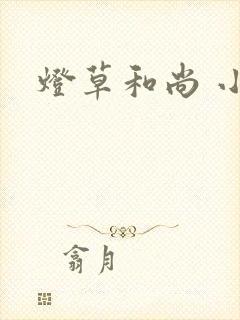 燈草和尚 小
翕月